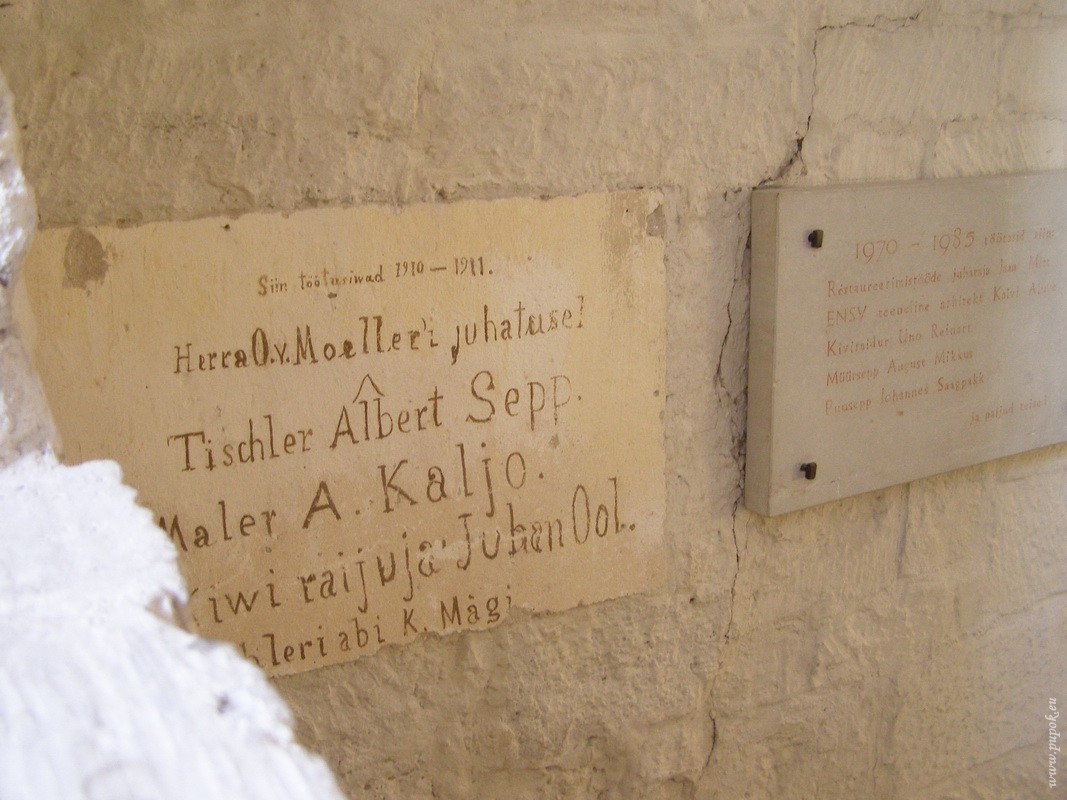 Siin töötasiwad 1910 — 1911.
Herra O.v. Moeller'i juhatusel
Tischler Albert Sepp.
Maler A. Kaljo.
Kiwi raijuja Juhan Ool.
hleri abi K. Mägi
1970 - 1985 töötasid siin
Restaureerimistööde juhataja
ENSV teeneline arhitekt
Kiviraidur Uno Reinart
Müürsepp August Mikkus
Puusepp Johannes Saagpakk
Ja paljud teised
www.pupok.ua